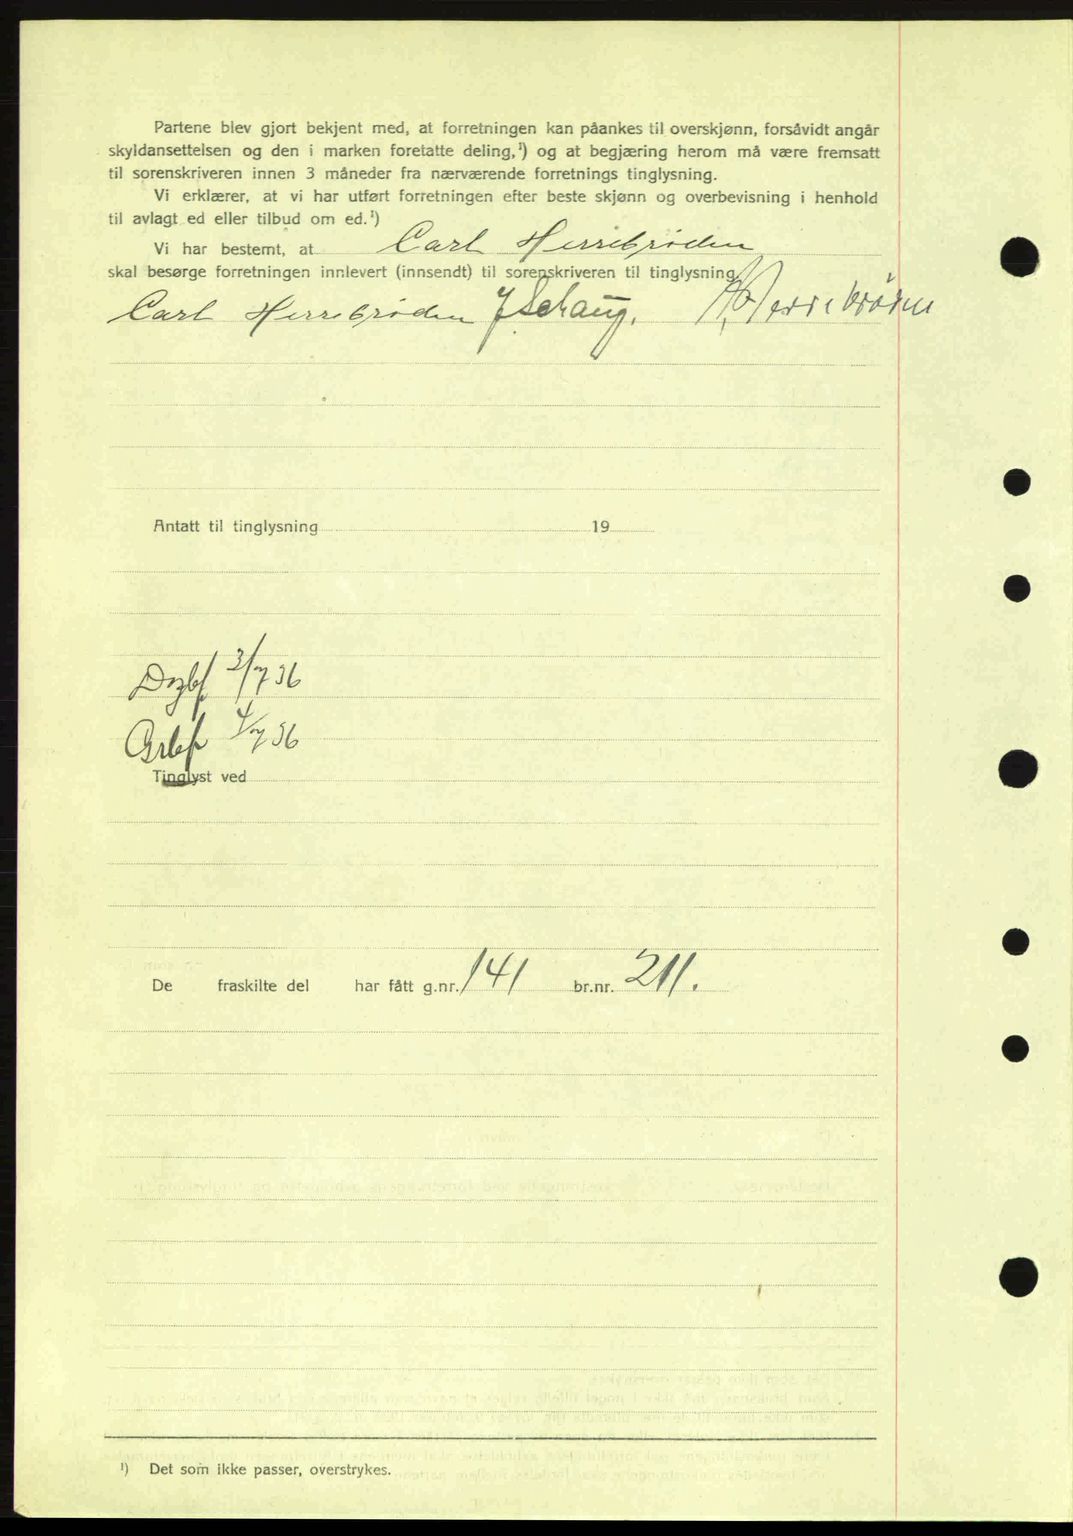 Partene blev gjort bekjent med, at forretningen kan påankes til overskjønn, forsåvidt angår
skyldansettelsen og den i marken foretatte deling,¹) og at begjæring herom må være fremsatt
til sorenskriveren innen 3 måneder fra nærværende forretnings tinglysning.
Vi erklærer, at vi har utført forretningen efter beste skjønn og overbevisning i henhold
til avlagt ed eller tilbud om ed.¹)
Vi har bestemt, at Carl Herrebrøden
skal besørge forretningen innlevert (innsendt) til sorenskriveren til tinglysning.
Carl Herrebrøden J Schaug.
Antatt til tinglysning 19
Dagbf 3/7 36
Grbf 4/7 36
Tinglyst ved
De fraskilte del har fått g.nr. 141 br.nr. 211.
¹) Det som ikke passer, overstrykes.